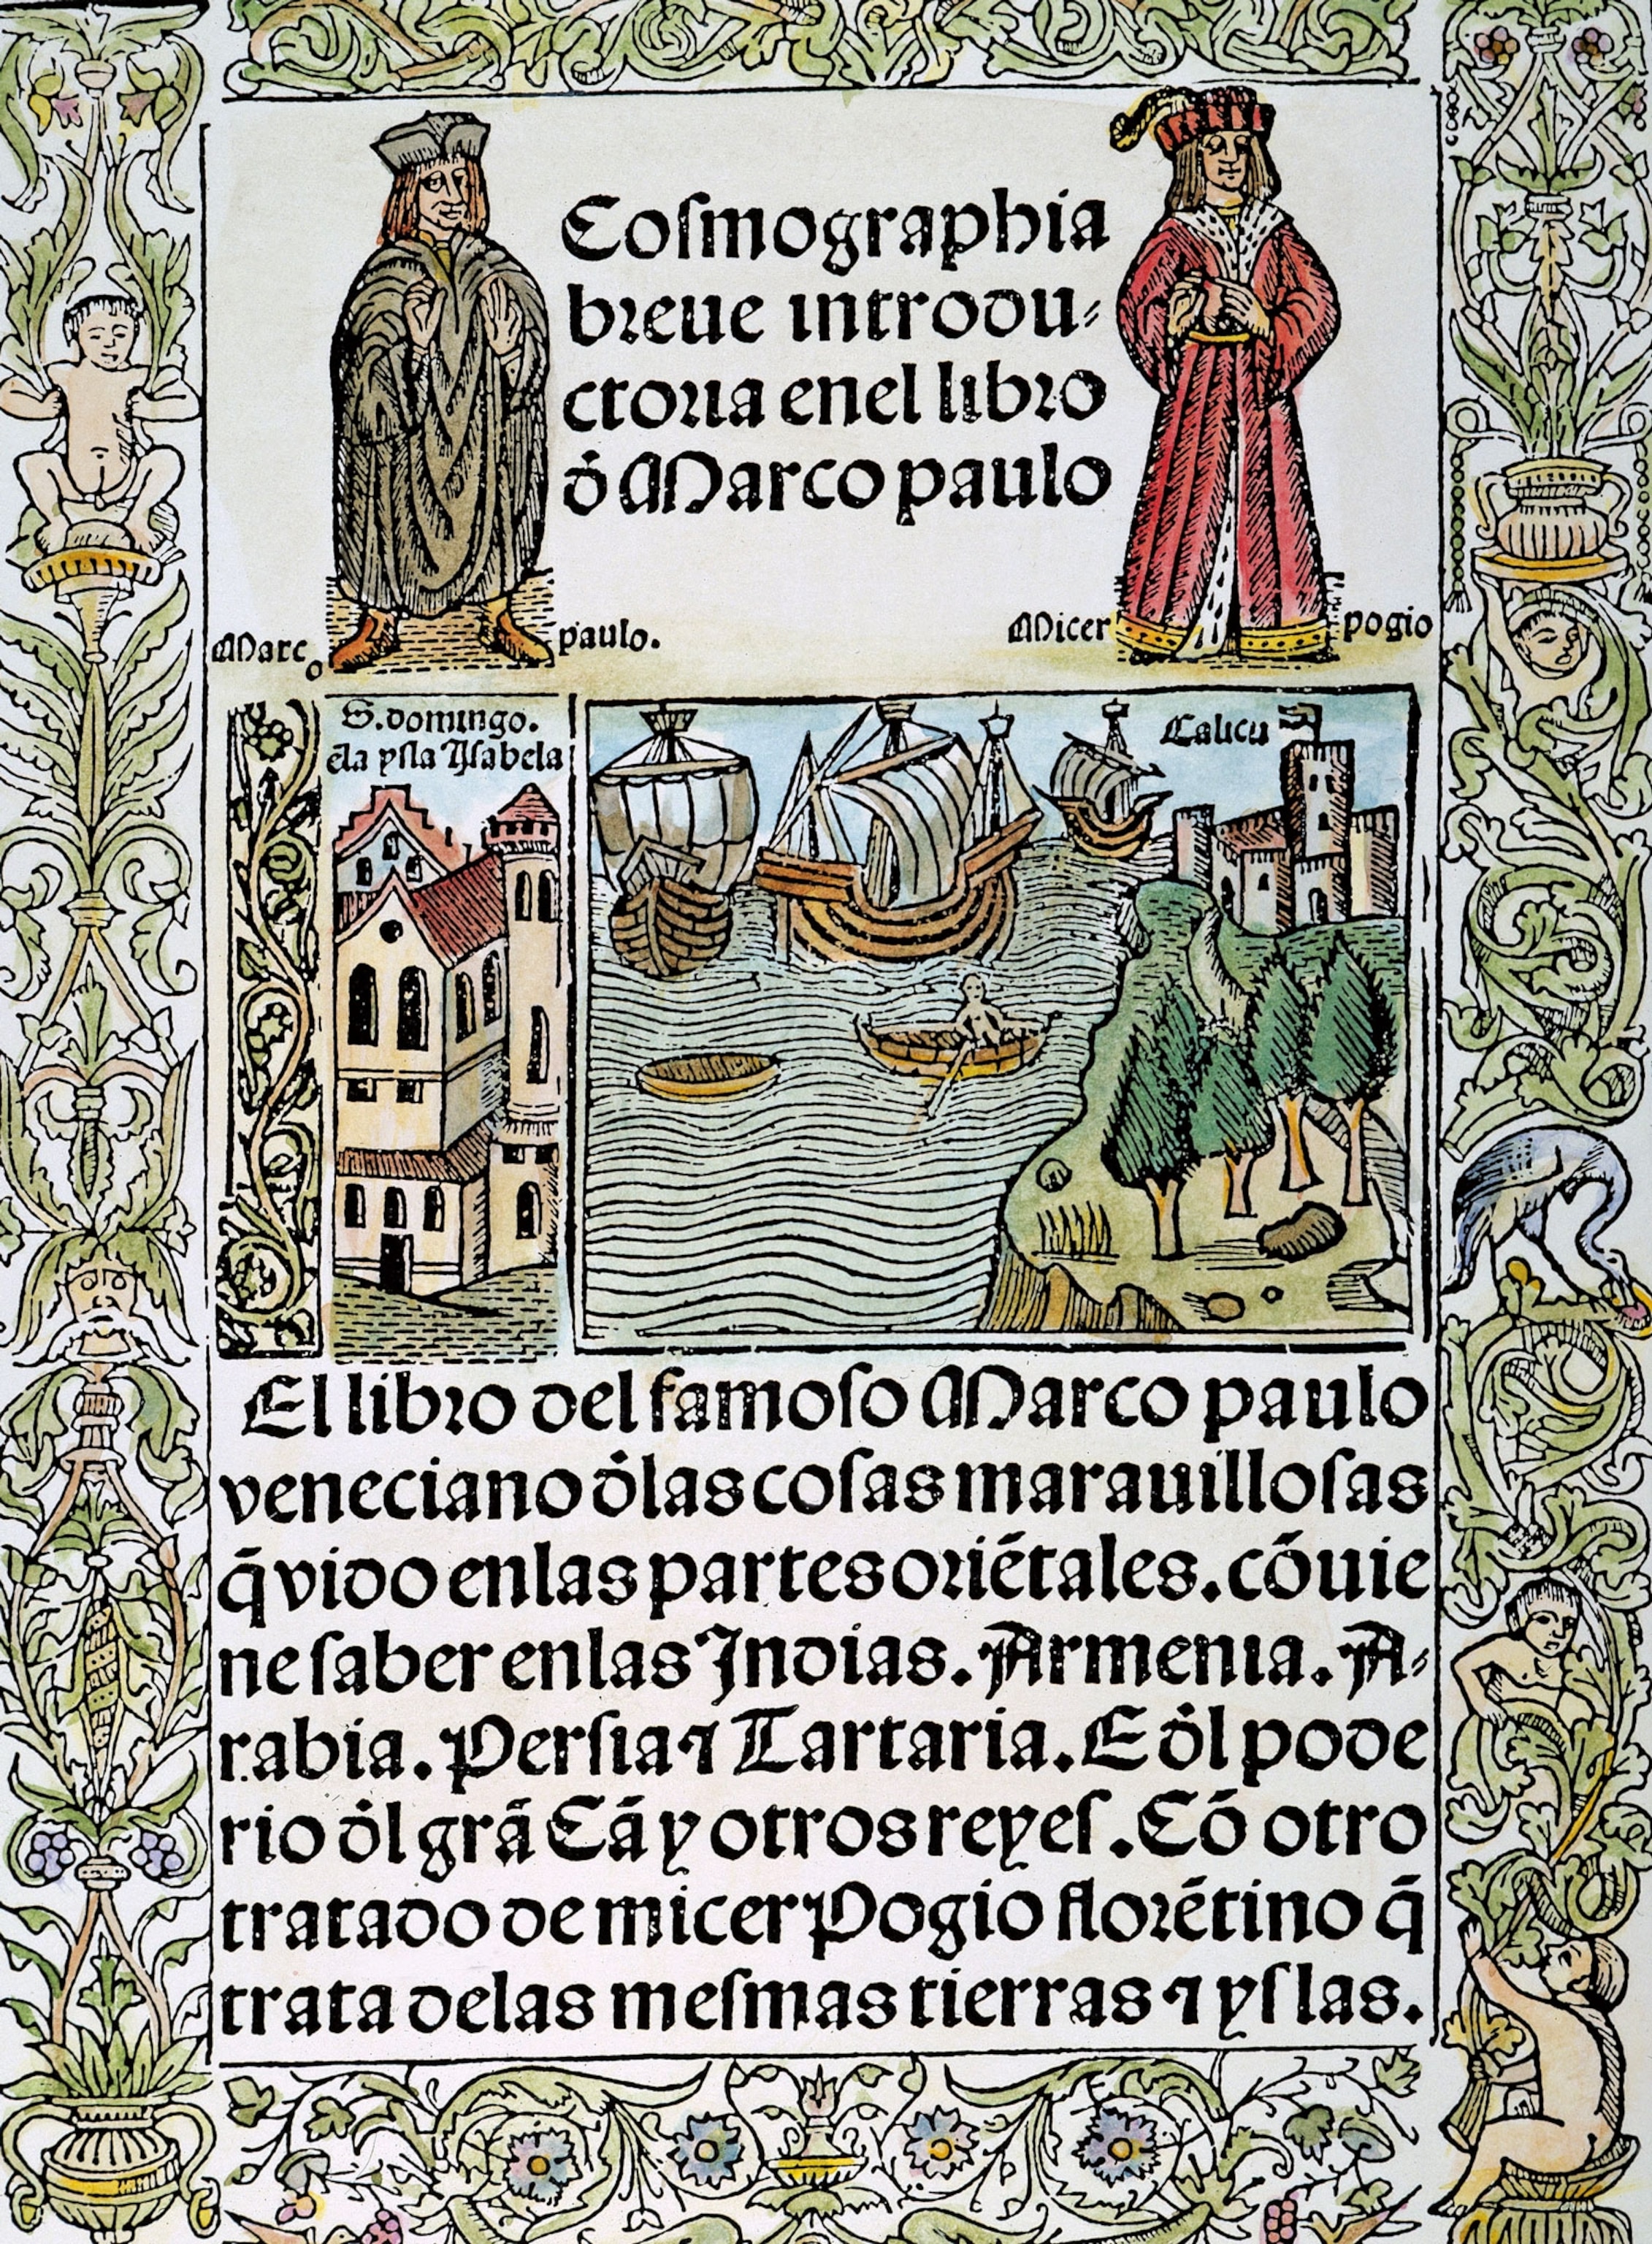 Coſmographia
breue introdu-
ctoria enel libro
ď Marco paulo
Marco paulo.
Micer pogio
S. domingo.
ẽla yſla Yſabela
Calicu
El libro del famoſo Marco paulo
veneciano ďlas coſas marauilloſas
q̃ vido enlas partes oriẽtales. cõuie
ne ſaber enlas Indias. Armenia. A-
rabia. Perſia ⁊ Tartaria. E ďl pode
rio ďl grã Cã y otros reyeſ. Cõ otro
tratado de micer Pogio florẽtino q̃
trata delas meſmas tierras ⁊ yſlas.